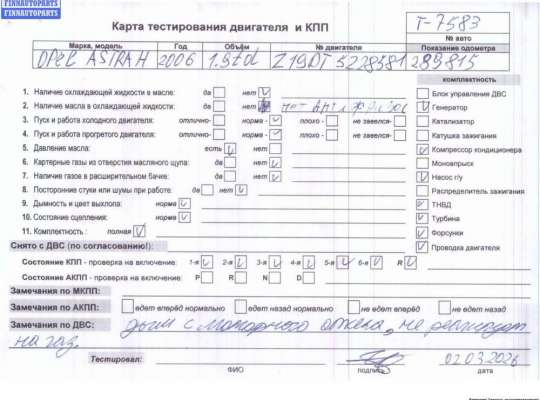 FINNAUTOPARTS
FINNAUTOPARTS
Карта тестирования двигателя и КПП
Т-7583
№ авто
Марка, модель Год Объём № двигателя Показание одометра
OPEL ASTRA H 2006 1.9td Z19DT 5228581 289815
комплектность
1. Наличие охлаждающей жидкости в масле: да нет
2. Наличие масла в охлаждающей жидкости: да нет нет антифриза
3. Пуск и работа холодного двигателя: отлично- норма - плохо - не завелся-
4. Пуск и работа прогретого двигателя: отлично- норма - плохо - не завелся-
5. Давление масла: есть нет
6. Картерные газы из отверстия масляного щупа: да нет
7. Наличие газов в расширительном бачке: да нет
8. Посторонние стуки или шумы при работе: да нет
9. Дымность и цвет выхлопа: норма
10. Состояние сцепления: норма
11. Комплектность: полная
Блок управления ДВС
Генератор
Катализатор
Катушка зажигания
Компрессор кондиционера
Моновпрыск
Насос г/у
Распределитель зажигания
ТНВД
Турбина
Форсунки
Проводка двигателя
Снято с ДВС (по согласованию!):
Состояние КПП - проверка на включение: 1-я 2-я 3-я 4-я 5-я 6-я R
Состояние АКПП - проверка на включение: P R N D
Замечания по МКПП:
Замечания по АКПП: едет вперёд нормально едет назад нормально не едет вперёд не едет назад
Замечания по ДВС: дым с моторного отсека, не реагирует
на газ.
Тестировал: 02.03.2026
ФИО подпись дата